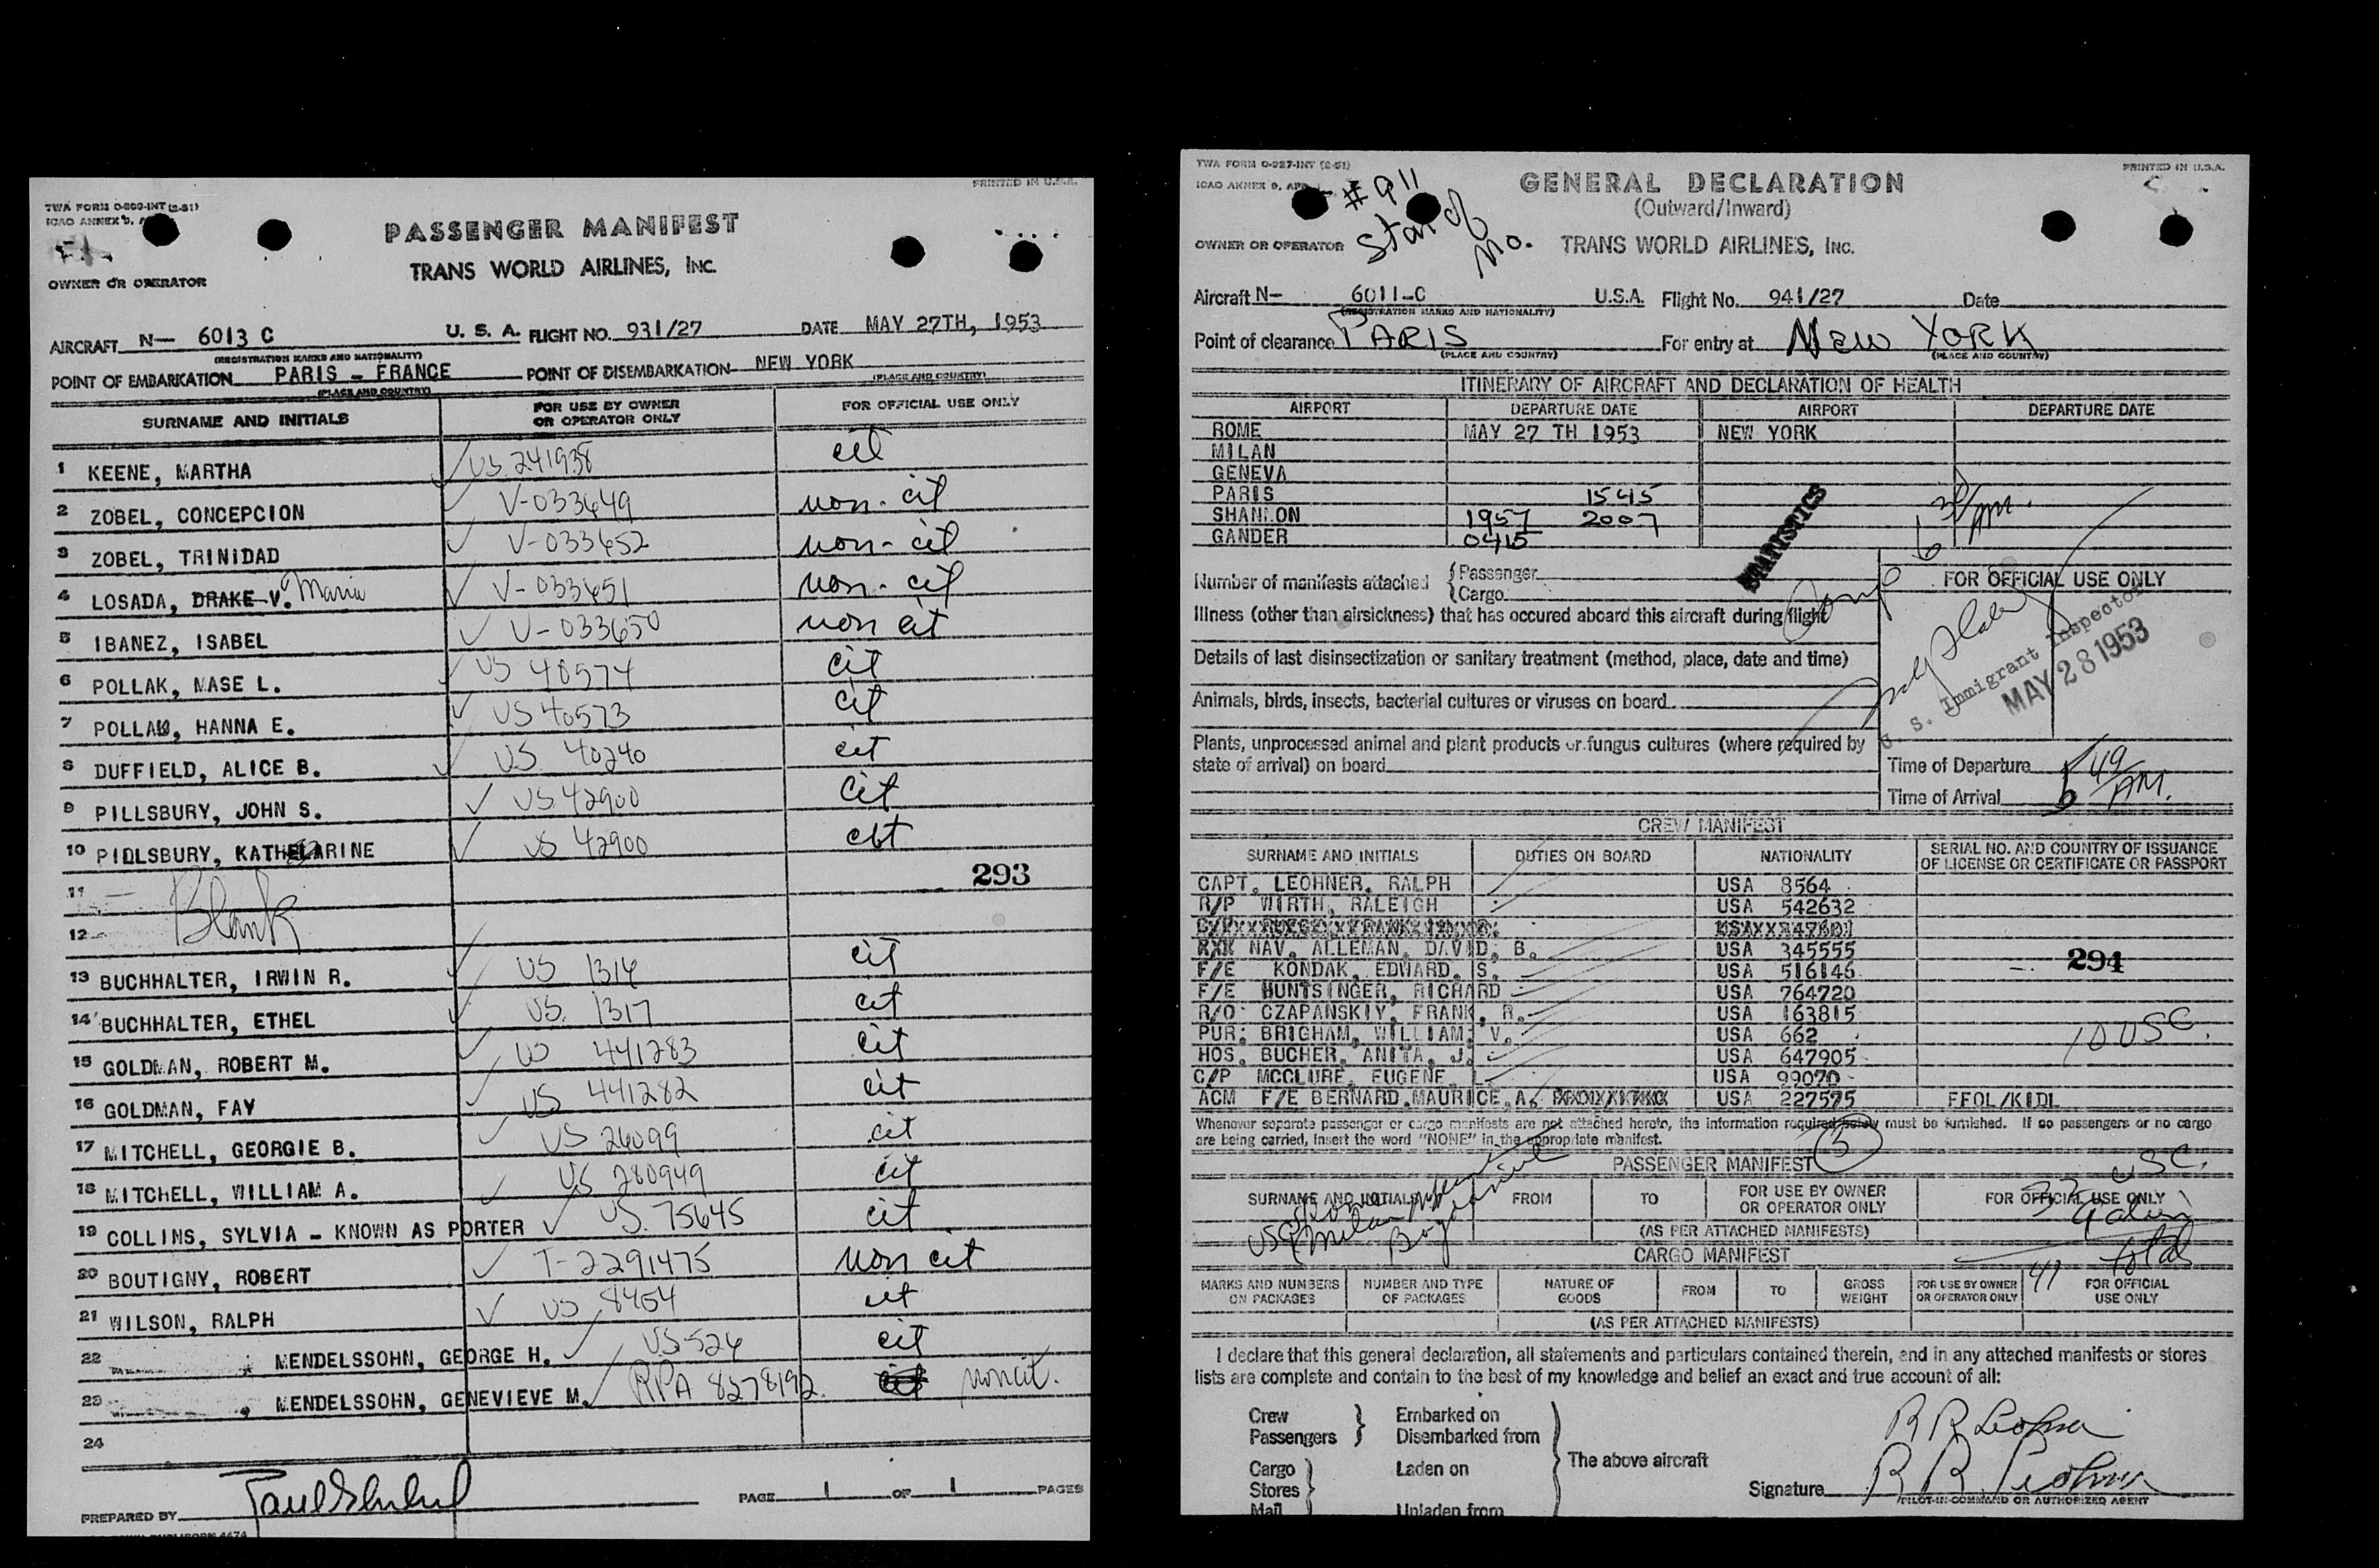 TWA FORM O-800-INT (2-51)
PRINTED IN U.S.A.
ICAO ANNEX 9,
PASSENGER MANIFEST
TRANS WORLD AIRLINES, INC.
OWNER OR OPERATOR
AIRCRAFT N— 6013 C U. S. A. FLIGHT NO. 931/27 DATE MAY 27TH, 1953
(REGISTRATION MARKS AND NATIONALITY)
POINT OF EMBARKATION PARIS - FRANCE POINT OF DISEMBARKATION NEW YORK
(PLACE AND COUNTRY) (PLACE AND COUNTRY)
SURNAME AND INITIALS FOR USE BY OWNER OR OPERATOR ONLY FOR OFFICIAL USE ONLY
1 KEENE, MARTHA US 241938 cit
2 ZOBEL, CONCEPCION V-033649 non-cit
3 ZOBEL, TRINIDAD V-033652 non-cit
4 LOSADA, DRAKE V. Maria V-033651 non-cit
5 IBANEZ, ISABEL V-033650 non cit
6 POLLAK, MASE L. US 40574 cit
7 POLLAK, HANNA E. US 40573 cit
8 DUFFIELD, ALICE B. US 40240 cit
9 PILLSBURY, JOHN S. US 42900 cit
10 PIDLSBURY, KATHELARINE US 42900 cit
293
11
Blank
12
13 BUCHHALTER, IRWIN R. US 1316 cit
14 BUCHHALTER, ETHEL US. 1317 cit
15 GOLDMAN, ROBERT M. US 441283 cit
16 GOLDMAN, FAY US 441282 cit
17 MITCHELL, GEORGIE B. US 26099 cit
18 MITCHELL, WILLIAM A. US 280949 cit
19 COLLINS, SYLVIA - KNOWN AS PORTER US. 75645 cit
20 BOUTIGNY, ROBERT T-2291475 non cit
21 WILSON, RALPH US 8464 cit
22 MENDELSSOHN, GEORGE H. US 526 cit
23 MENDELSSOHN, GENEVIEVE M. RPA 8278192. cit noncit.
24
PREPARED BY PAGE 1 OF 1 PAGES
TWA FORM O-927-INT (2-51)
PRINTED IN U.S.A.
ICAO ANNEX 9,
#911
Star of
Mo.
GENERAL DECLARATION
(Outward/Inward)
OWNER OR OPERATOR TRANS WORLD AIRLINES, INC.
Aircraft N— 6011-C U.S.A. Flight No. 941/27 Date
(REGISTRATION MARKS AND NATIONALITY)
Point of clearance PARIS For entry at New YORK
(PLACE AND COUNTRY) (PLACE AND COUNTRY)
ITINERARY OF AIRCRAFT AND DECLARATION OF HEALTH
AIRPORT DEPARTURE DATE AIRPORT DEPARTURE DATE
ROME MAY 27 TH 1953 NEW YORK
MILAN
GENEVA
PARIS 1545
SHANNON 1957 2007
GANDER 0415
STATISTICS
6 30/AM.
Number of manifests attached { Passenger
Cargo
FOR OFFICIAL USE ONLY
Illness (other than airsickness) that has occured aboard this aircraft during flight
Details of last disinsectization or sanitary treatment (method, place, date and time)
U. S. Immigrant Inspector
MAY 28 1953
Animals, birds, insects, bacterial cultures or viruses on board
Plants, unprocessed animal and plant products or fungus cultures (where required by
state of arrival) on board
Time of Departure
Time of Arrival 5 49 AM.
CREW MANIFEST
SURNAME AND INITIALS DUTIES ON BOARD NATIONALITY SERIAL NO. AND COUNTRY OF ISSUANCE OF LICENSE OR CERTIFICATE OR PASSPORT
CAPT. LEOHNER, RALPH USA 8564
R/P WIRTH, RALEIGH USA 542632
NAV. ALLEMAN, DAVID, B. USA 345555
294
F/E KONDAK, EDWARD, S. USA 516146
F/E HUNTSINGER, RICHARD USA 764720
R/O CZAPANSKIY, FRANK, R. USA 163815
PUR: BRIGHAM, WILLIAM, V. USA 662
10 USC.
HOS. BUCHER, ANITA, J. USA 647905
C/P MCCLURE, EUGENE, L USA 99070
ACM F/E BERNARD.MAURICE,A. USA 227575 FFOL/KIDL
Whenever separate passenger or cargo manifests are not attached hereto, the information required below must be furnished. If no passengers or no cargo
are being carried, insert the word "NONE" in the appropriate manifest.
PASSENGER MANIFEST 3
SURNAME AND INITIALS FROM TO FOR USE BY OWNER OR OPERATOR ONLY FOR OFFICIAL USE ONLY
USC
(AS PER ATTACHED MANIFESTS)
CARGO MANIFEST
41 total
MARKS AND NUMBERS ON PACKAGES NUMBER AND TYPE OF PACKAGES NATURE OF GOODS FROM TO GROSS WEIGHT FOR USE BY OWNER OR OPERATOR ONLY FOR OFFICIAL USE ONLY
(AS PER ATTACHED MANIFESTS)
I declare that this general declaration, all statements and particulars contained therein, and in any attached manifests or stores
lists are complete and contain to the best of my knowledge and belief an exact and true account of all:
Crew Embarked on
Passengers Disembarked from
Cargo Laden on The above aircraft
Stores
Mail Unladen from
Signature
PILOT-IN-COMMAND OR AUTHORIZED AGENT